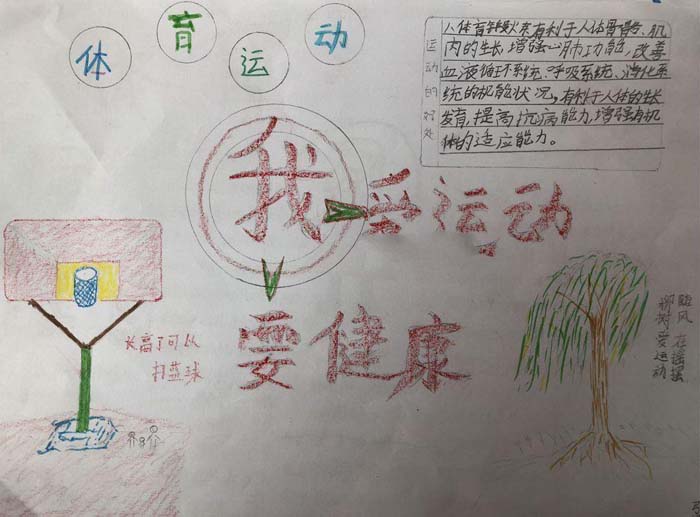 体育运动
运动的好处
人体育锻炼有利于人体骨骼、肌
肉的生长,增强心肺功能,改善
血液循环系统、呼吸系统、消化系
统的机能状况,有利于人体的生长
发育,提高抗病能力,增强有机
体的适应能力。
我
要运动
要健康
长高了可以
打蓝球
随风在摇摇
柳树爱运动